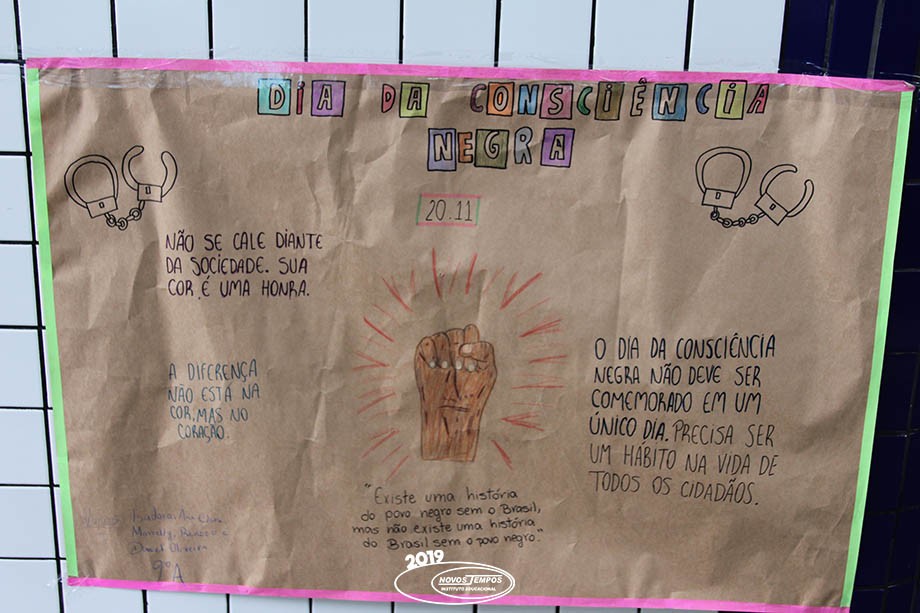 DIA DA CONSCIÊNCIA
NEGRA
20.11
NÃO SE CALE DIANTE
DA SOCIEDADE. SUA
COR É UMA HONRA.
A DIFERENÇA
NÃO ESTÁ NA
COR, MAS NO
CORAÇÃO.
O DIA DA CONSCIÊNCIA
NEGRA NÃO DEVE SER
COMEMORADO EM UM
ÚNICO DIA. PRECISA SER
UM HÁBITO NA VIDA DE
TODOS OS CIDADÃOS.
"Existe uma história
do povo negro sem o Brasil,
mas não existe uma história
do Brasil sem o povo negro."
Isadora, Ana
Oliveira
9º A
2019
NOVOS TEMPOS
INSTITUTO EDUCACIONAL